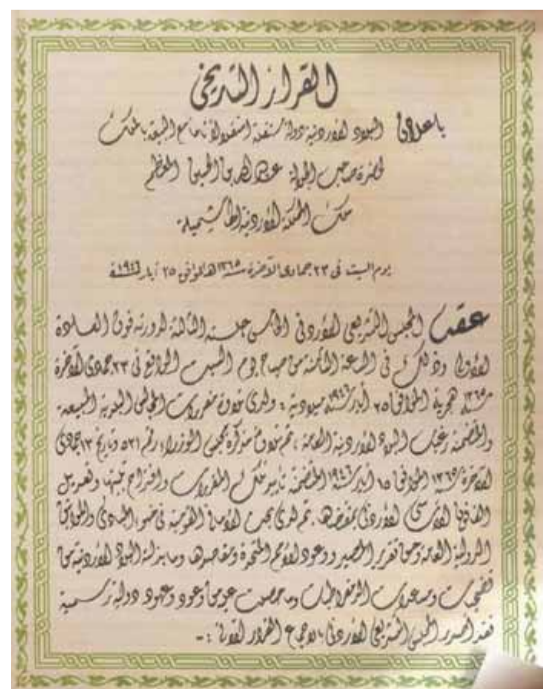 القرار التاريخي
باعلان البلاد الأردنية دولة مستقلة استقلالاً تاماً مع البيعة بالملك
لحضرة صاحب الجلالة عبد الله بن الحسين المعظم
ملك المملكة الأردنية الهاشمية
يوم السبت في ٢٣ جمادى الآخرة سنة ١٣٦٥ هـ الموافق ٢٥ أيار سنة ١٩٤٦
عقد المجلس التشريعي الأردني الخامس جلسته الثالثة لدورته فوق العادة
الأولى وذلك في الساعة الثامنة من صباح يوم السبت الواقع في ٢٣ جمادى الآخرة
سنة ١٣٦٥ هجرية الموافق ٢٥ أيار سنة ١٩٤٦ ميلادية ، ولدى تلاوة مقررات المجالس البلدية المبلغة
والمتضمنة رغبات البلاد الأردنية العامة ، ثم تلاوة مذكرة مجلس الوزراء رقم ٥٢١ وتاريخ ١٣ جمادى
الآخرة ١٣٦٥ الموافق ١٥ أيار سنة ١٩٤٦ المتضمنة تأييد تلك المقررات واقتراح تلبيتها وتعديل
القانون الأساسي الأردني بمقتضاها ، ثم لدى بحث الأماني القومية في ضوء المبادئ والمواثيق
الدولية العامة وحق تقرير المصير ووعود الأمم المتحدة ومقاصدها وما بذلته البلاد الأردنية من
تضحيات ومساعدات للديمقراطيات وما حصلت عليه من وعود وعهود دولية رسمية
فقد أصدر المجلس التشريعي الأردني بالإجماع القرار الآتي : -